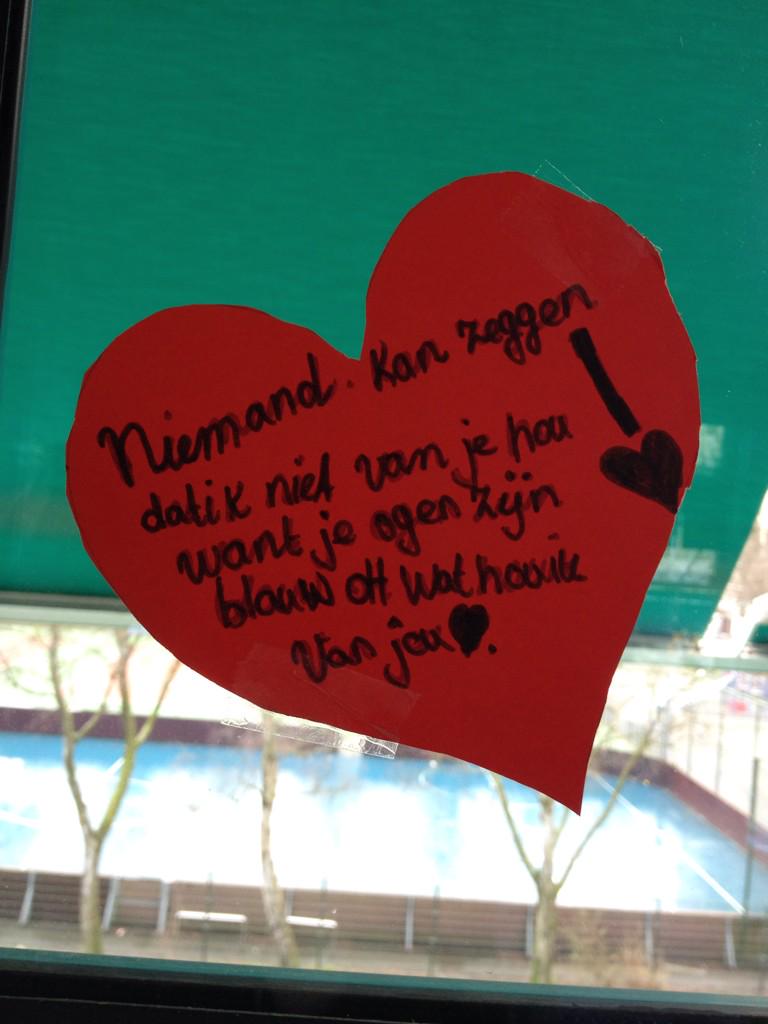 Niemand kan zeggen
dat ik niet van je hou
want je ogen zijn
blauw oH wat hou ik
van jou